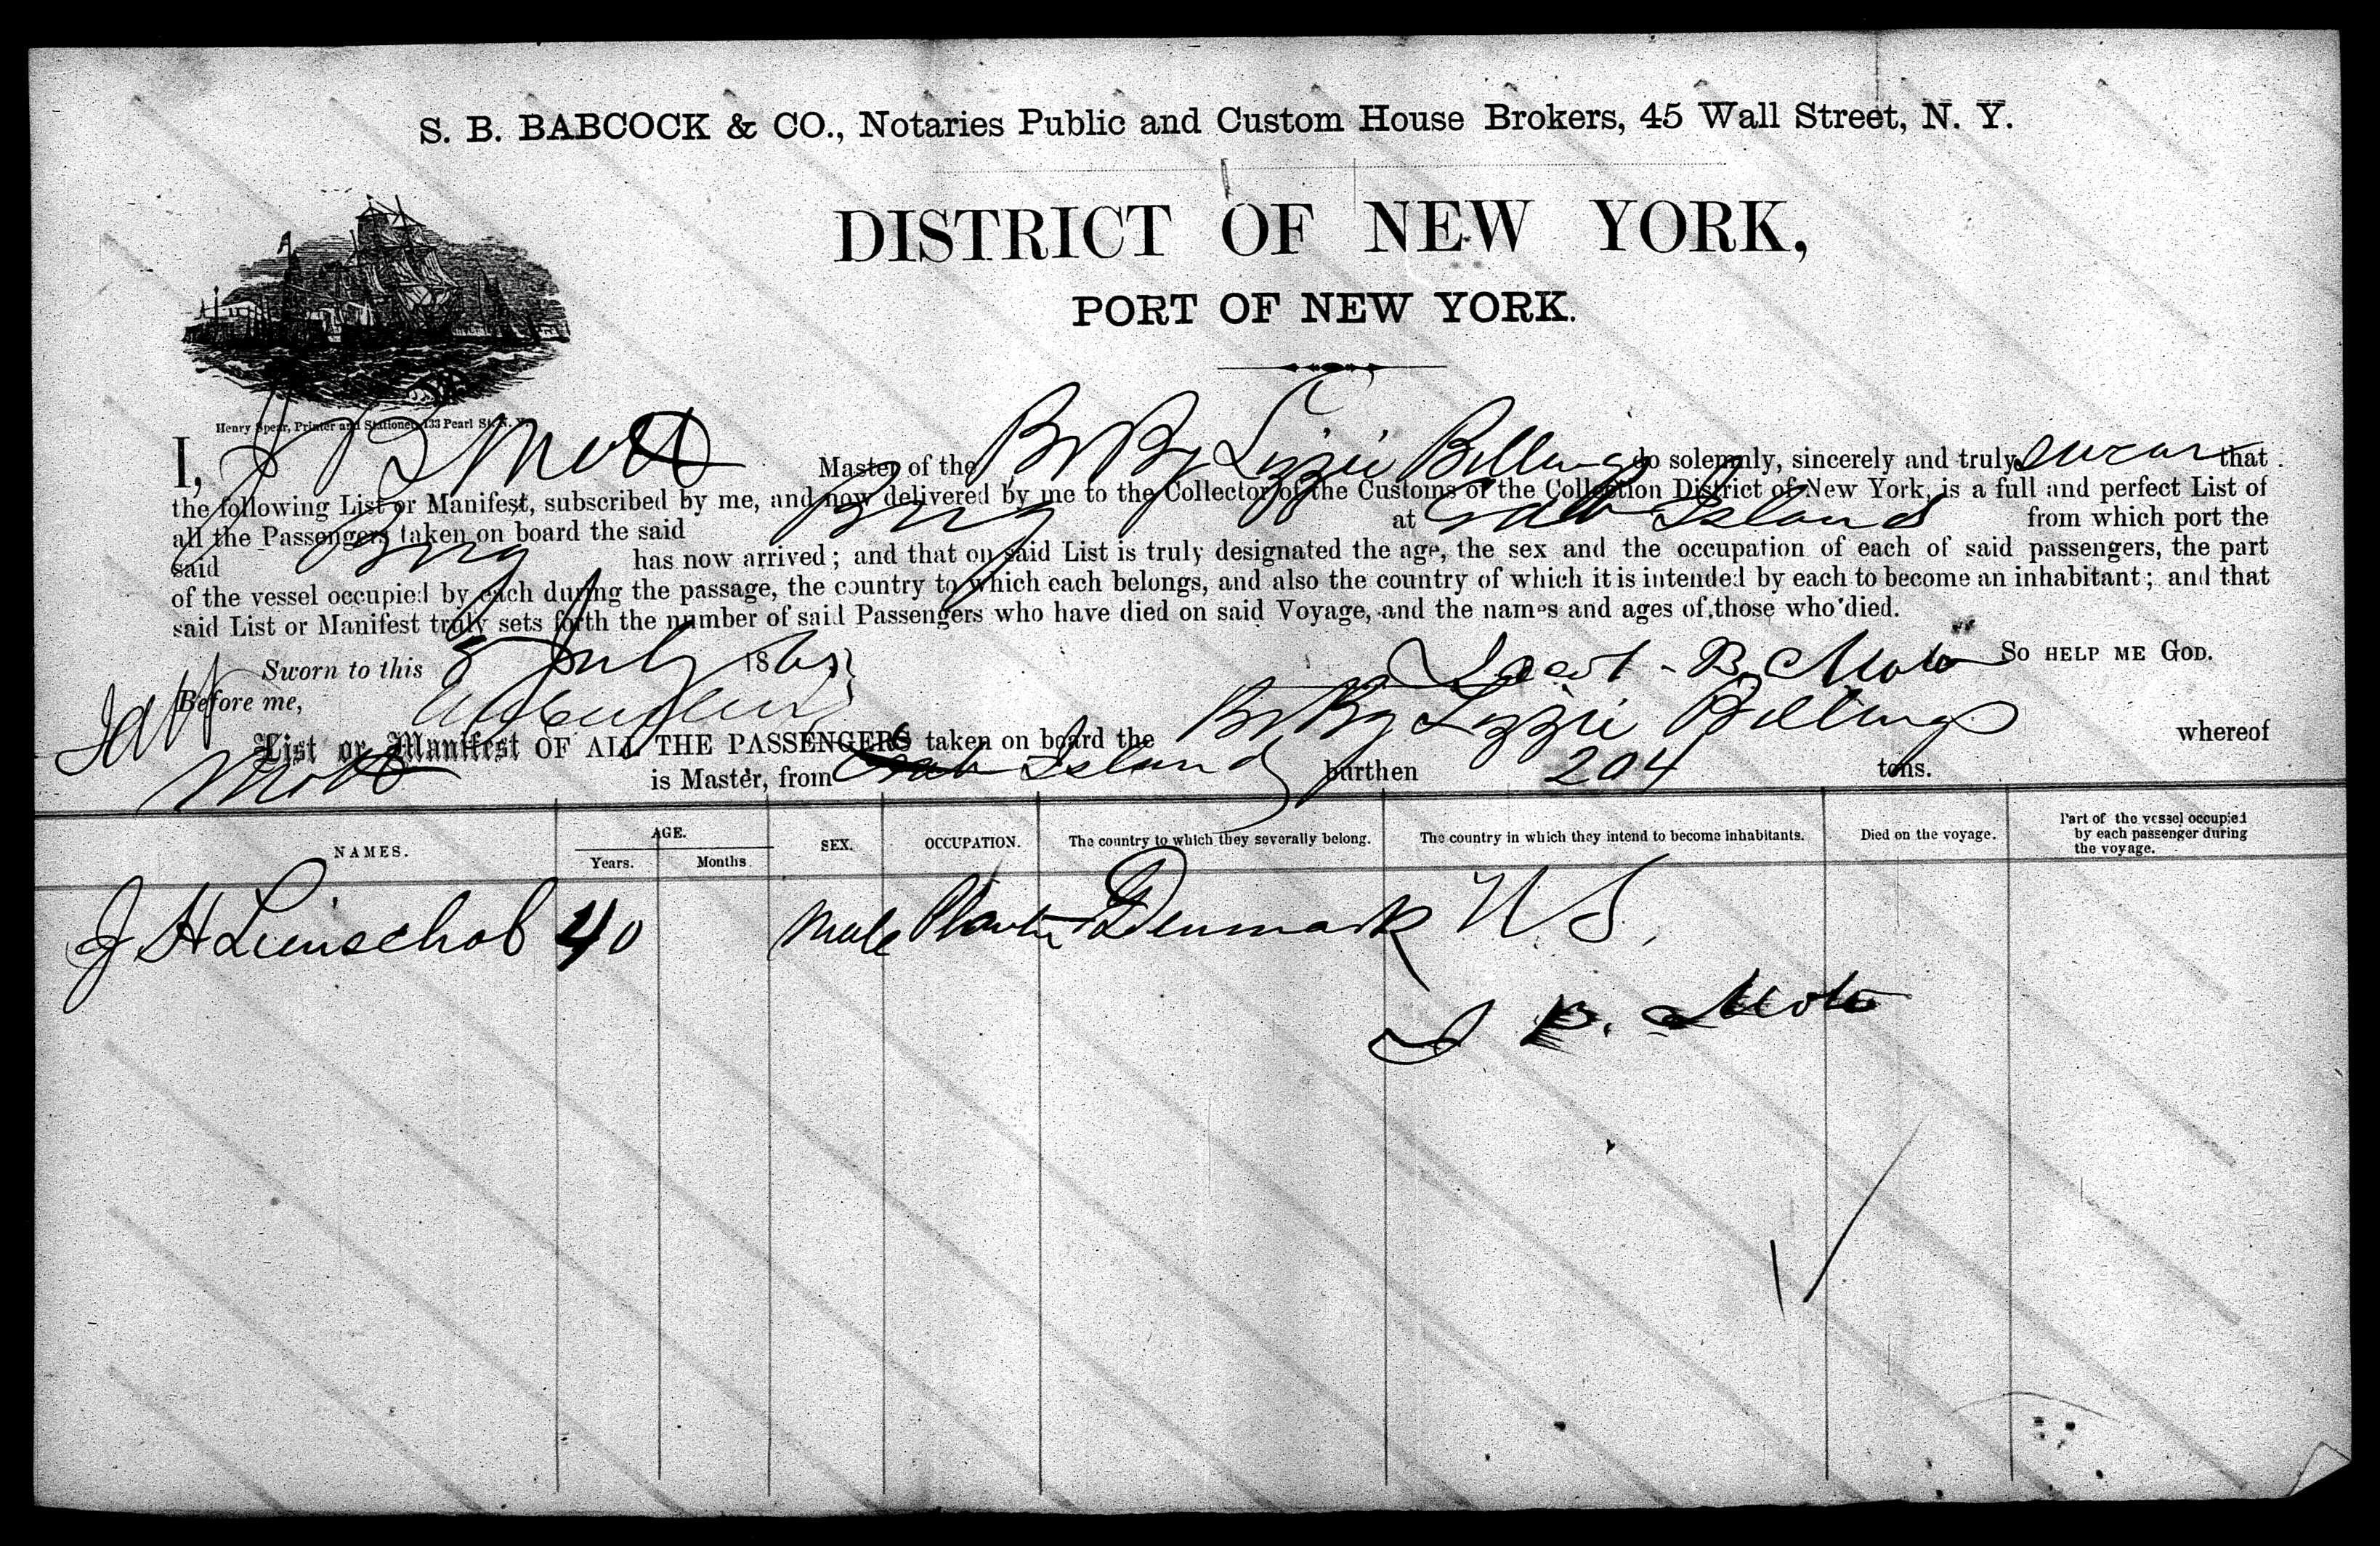 S. B. BABCOCK & CO., Notaries Public and Custom House Brokers, 45 Wall Street, N. Y.
DISTRICT OF NEW YORK,
PORT OF NEW YORK.
Henry Spear, Printer and Stationer, 133 Pearl St. N. Y.
I, J B Mott Master of the Br Bg Lizzie Billings do solemnly, sincerely and truly swear that
the following List or Manifest, subscribed by me, and now delivered by me to the Collector of the Customs of the Collection District of New York, is a full and perfect List of
all the Passengers taken on board the said Brig at Crab Island from which port the
said Brig has now arrived; and that on said List is truly designated the age, the sex and the occupation of each of said passengers, the part
of the vessel occupied by each during the passage, the country to which each belongs, and also the country of which it is intended by each to become an inhabitant; and that
said List or Manifest truly sets forth the number of said Passengers who have died on said Voyage, and the names and ages of those who died.
Sworn to this 8 July 186 B. Mott SO HELP ME GOD.
Before me,
List or Manifest OF ALL THE PASSENGERS taken on board the Br Bg Lizzie Billings whereof
Mott is Master, from Crab Island burthen 204 tons.
NAMES. AGE. Years. Months. SEX. OCCUPATION. The country to which they severally belong. The country in which they intend to become inhabitants. Died on the voyage. Part of the vessel occupied by each passenger during the voyage.
J H 40 Male Planter Denmark U S.
B. Mott